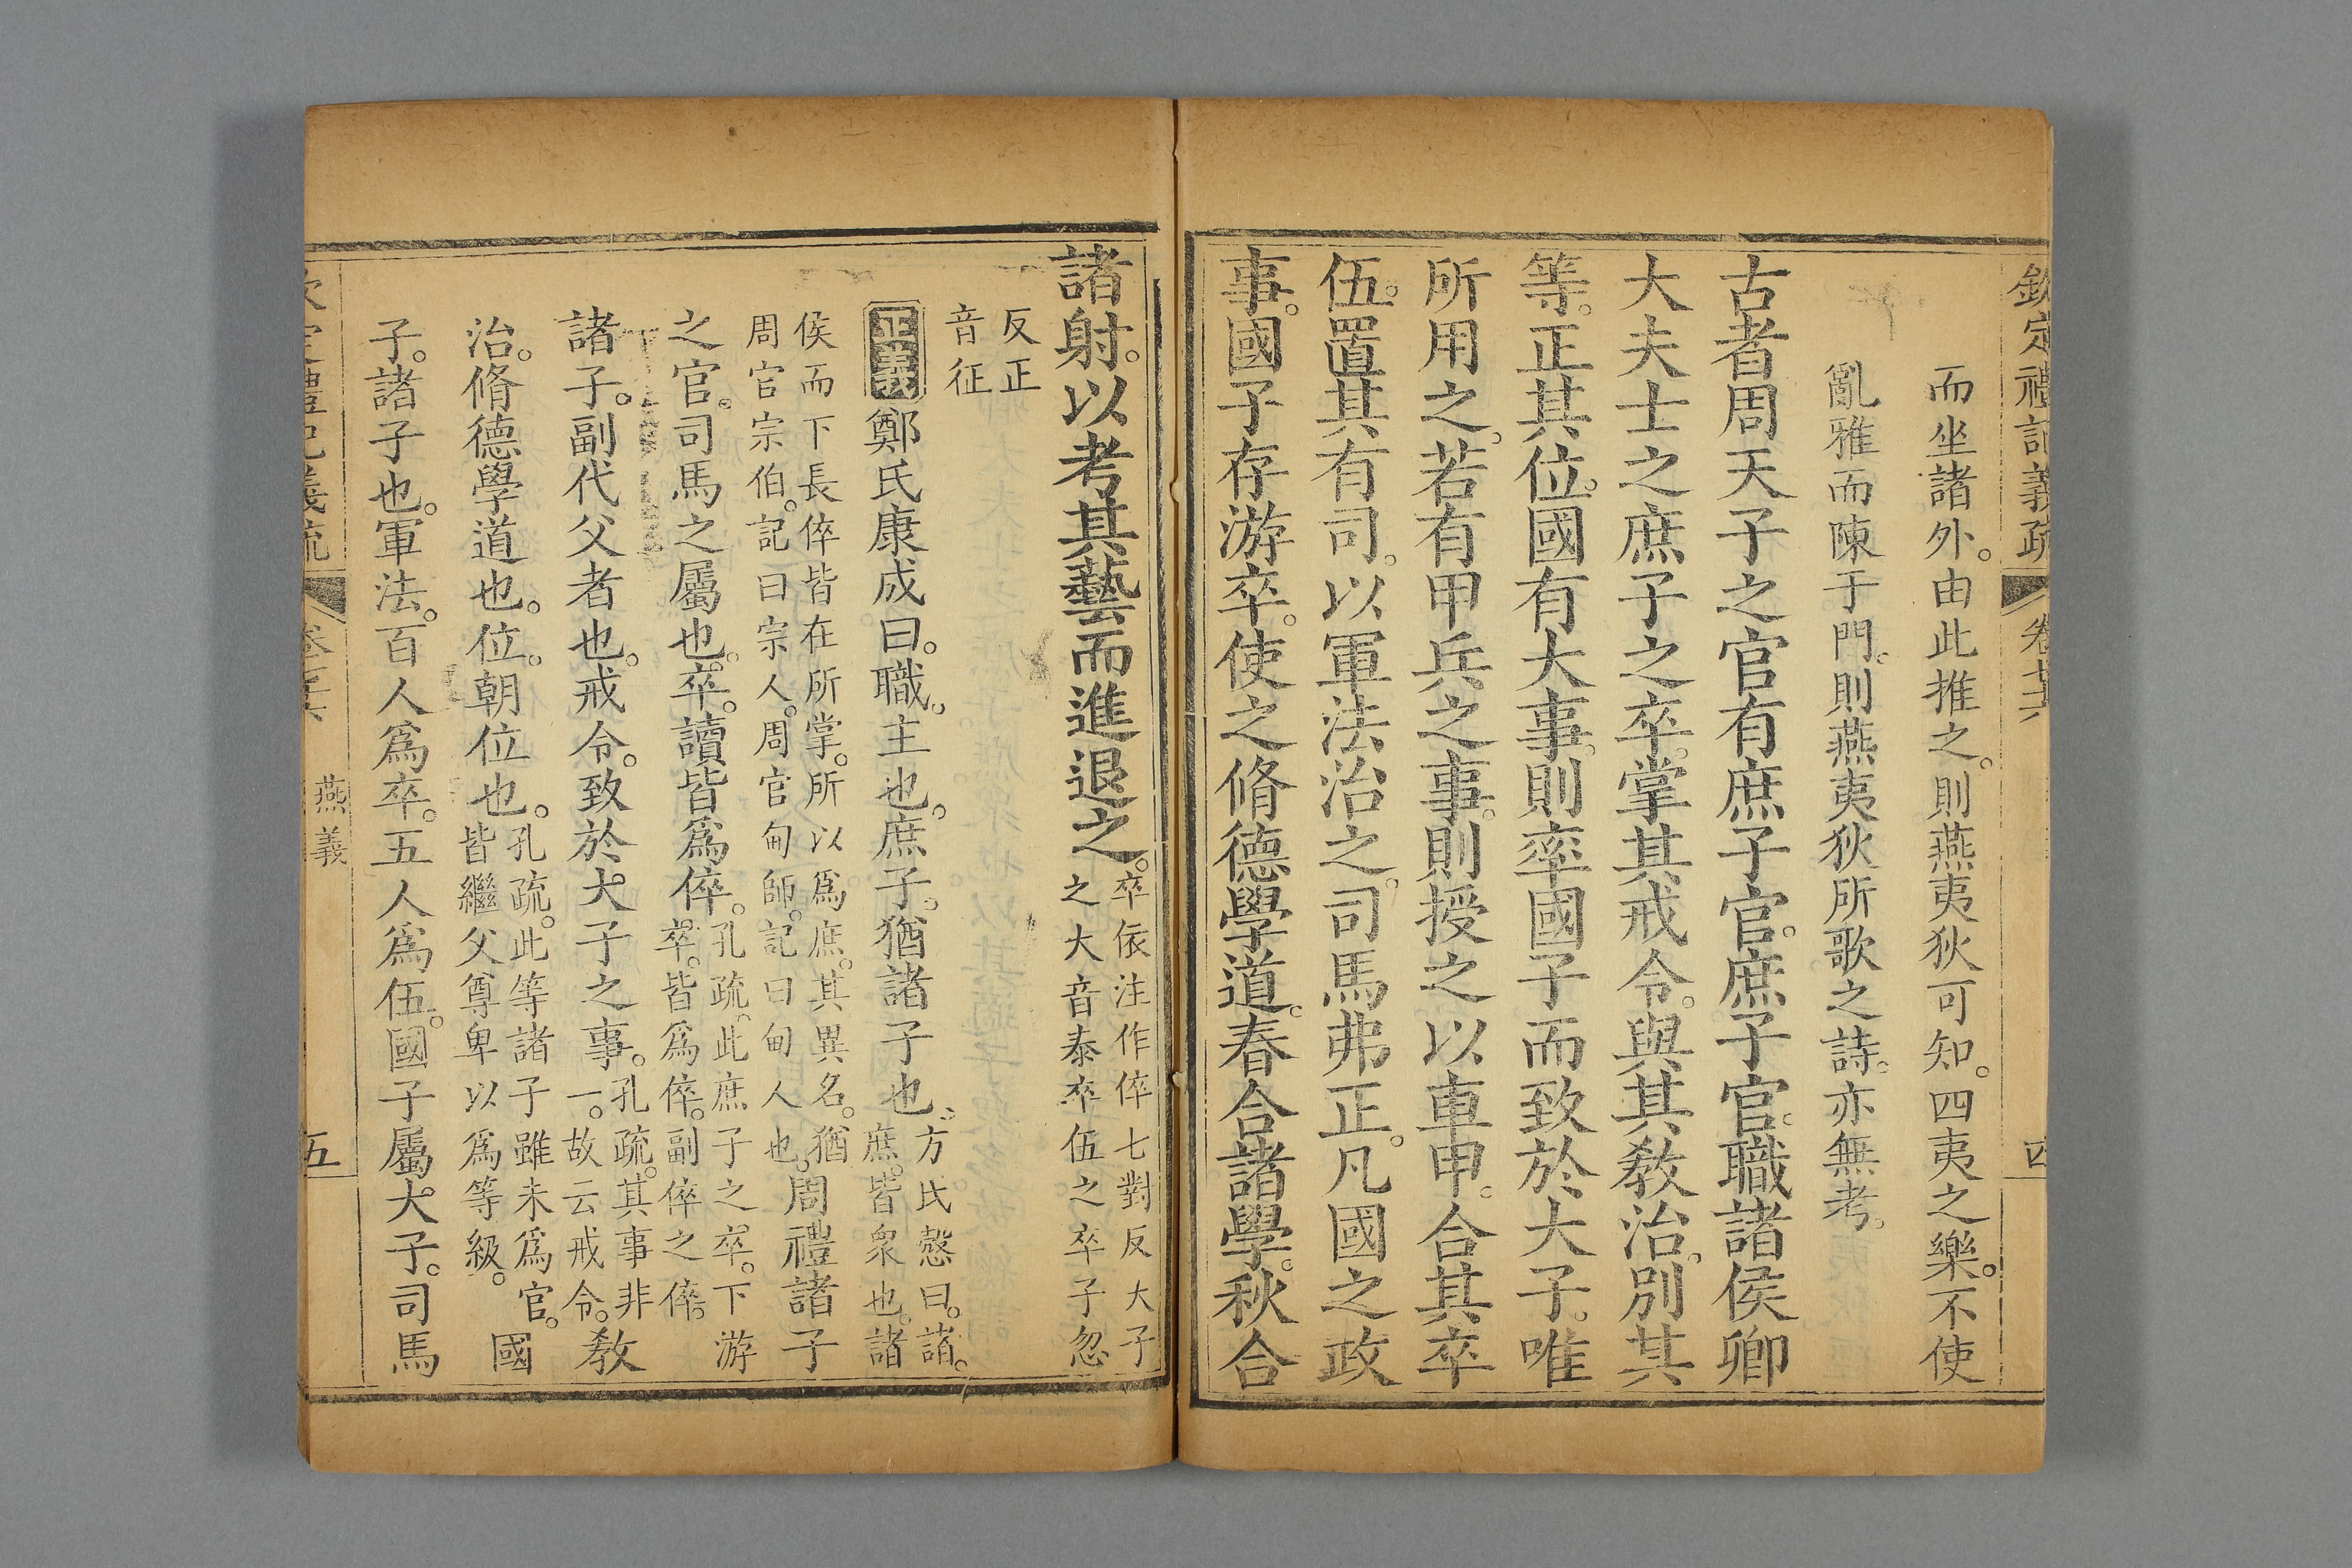 欽定禮記義疏 卷七十六 四
而坐諸外。由此推之。則燕夷狄可知。四夷之樂。不使
亂雅而陳于門。則燕夷狄所歌之詩。亦無考。
古者周天子之官有庶子官。庶子官。職諸侯卿
大夫士之庶子之卒。掌其戒令。與其敎治。別其
等。正其位。國有大事。則率國子而致於大子。唯
所用之。若有甲兵之事。則授之以車甲。合其卒
伍。置其有司。以軍法治之。司馬弗正。凡國之政
事。國子存游卒。使之脩德學道。春合諸學。秋合
諸射。以考其藝而進退之。
卒依注作倅七對反大子
之大音泰卒伍之卒子忽
反正
音征
正義 鄭氏康成曰。職。主也。庶子。猶諸子也。
方氏慤曰。諸。
庶。皆衆也。諸
侯而下長倅皆在所掌。所以爲庶。其異名。猶
周官宗伯。記曰宗人。周官甸師。記曰甸人也。
周禮諸子
之官。司馬之屬也。卒。讀皆爲倅。
孔疏。此庶子之卒。下
卒。皆爲倅。副倅之倅。
游
諸子。副代父者也。戒令。致於大子之事。
孔疏。其事非
一。故云戒令。
敎
治。脩德學道也。位。朝位也。
孔疏。此等諸子雖未爲官。
皆繼父尊卑以爲等級。
國
子。諸子也。軍法。百人爲卒。五人爲伍。國子屬大子。司馬
欽定禮記義疏 卷七十六 燕義 五